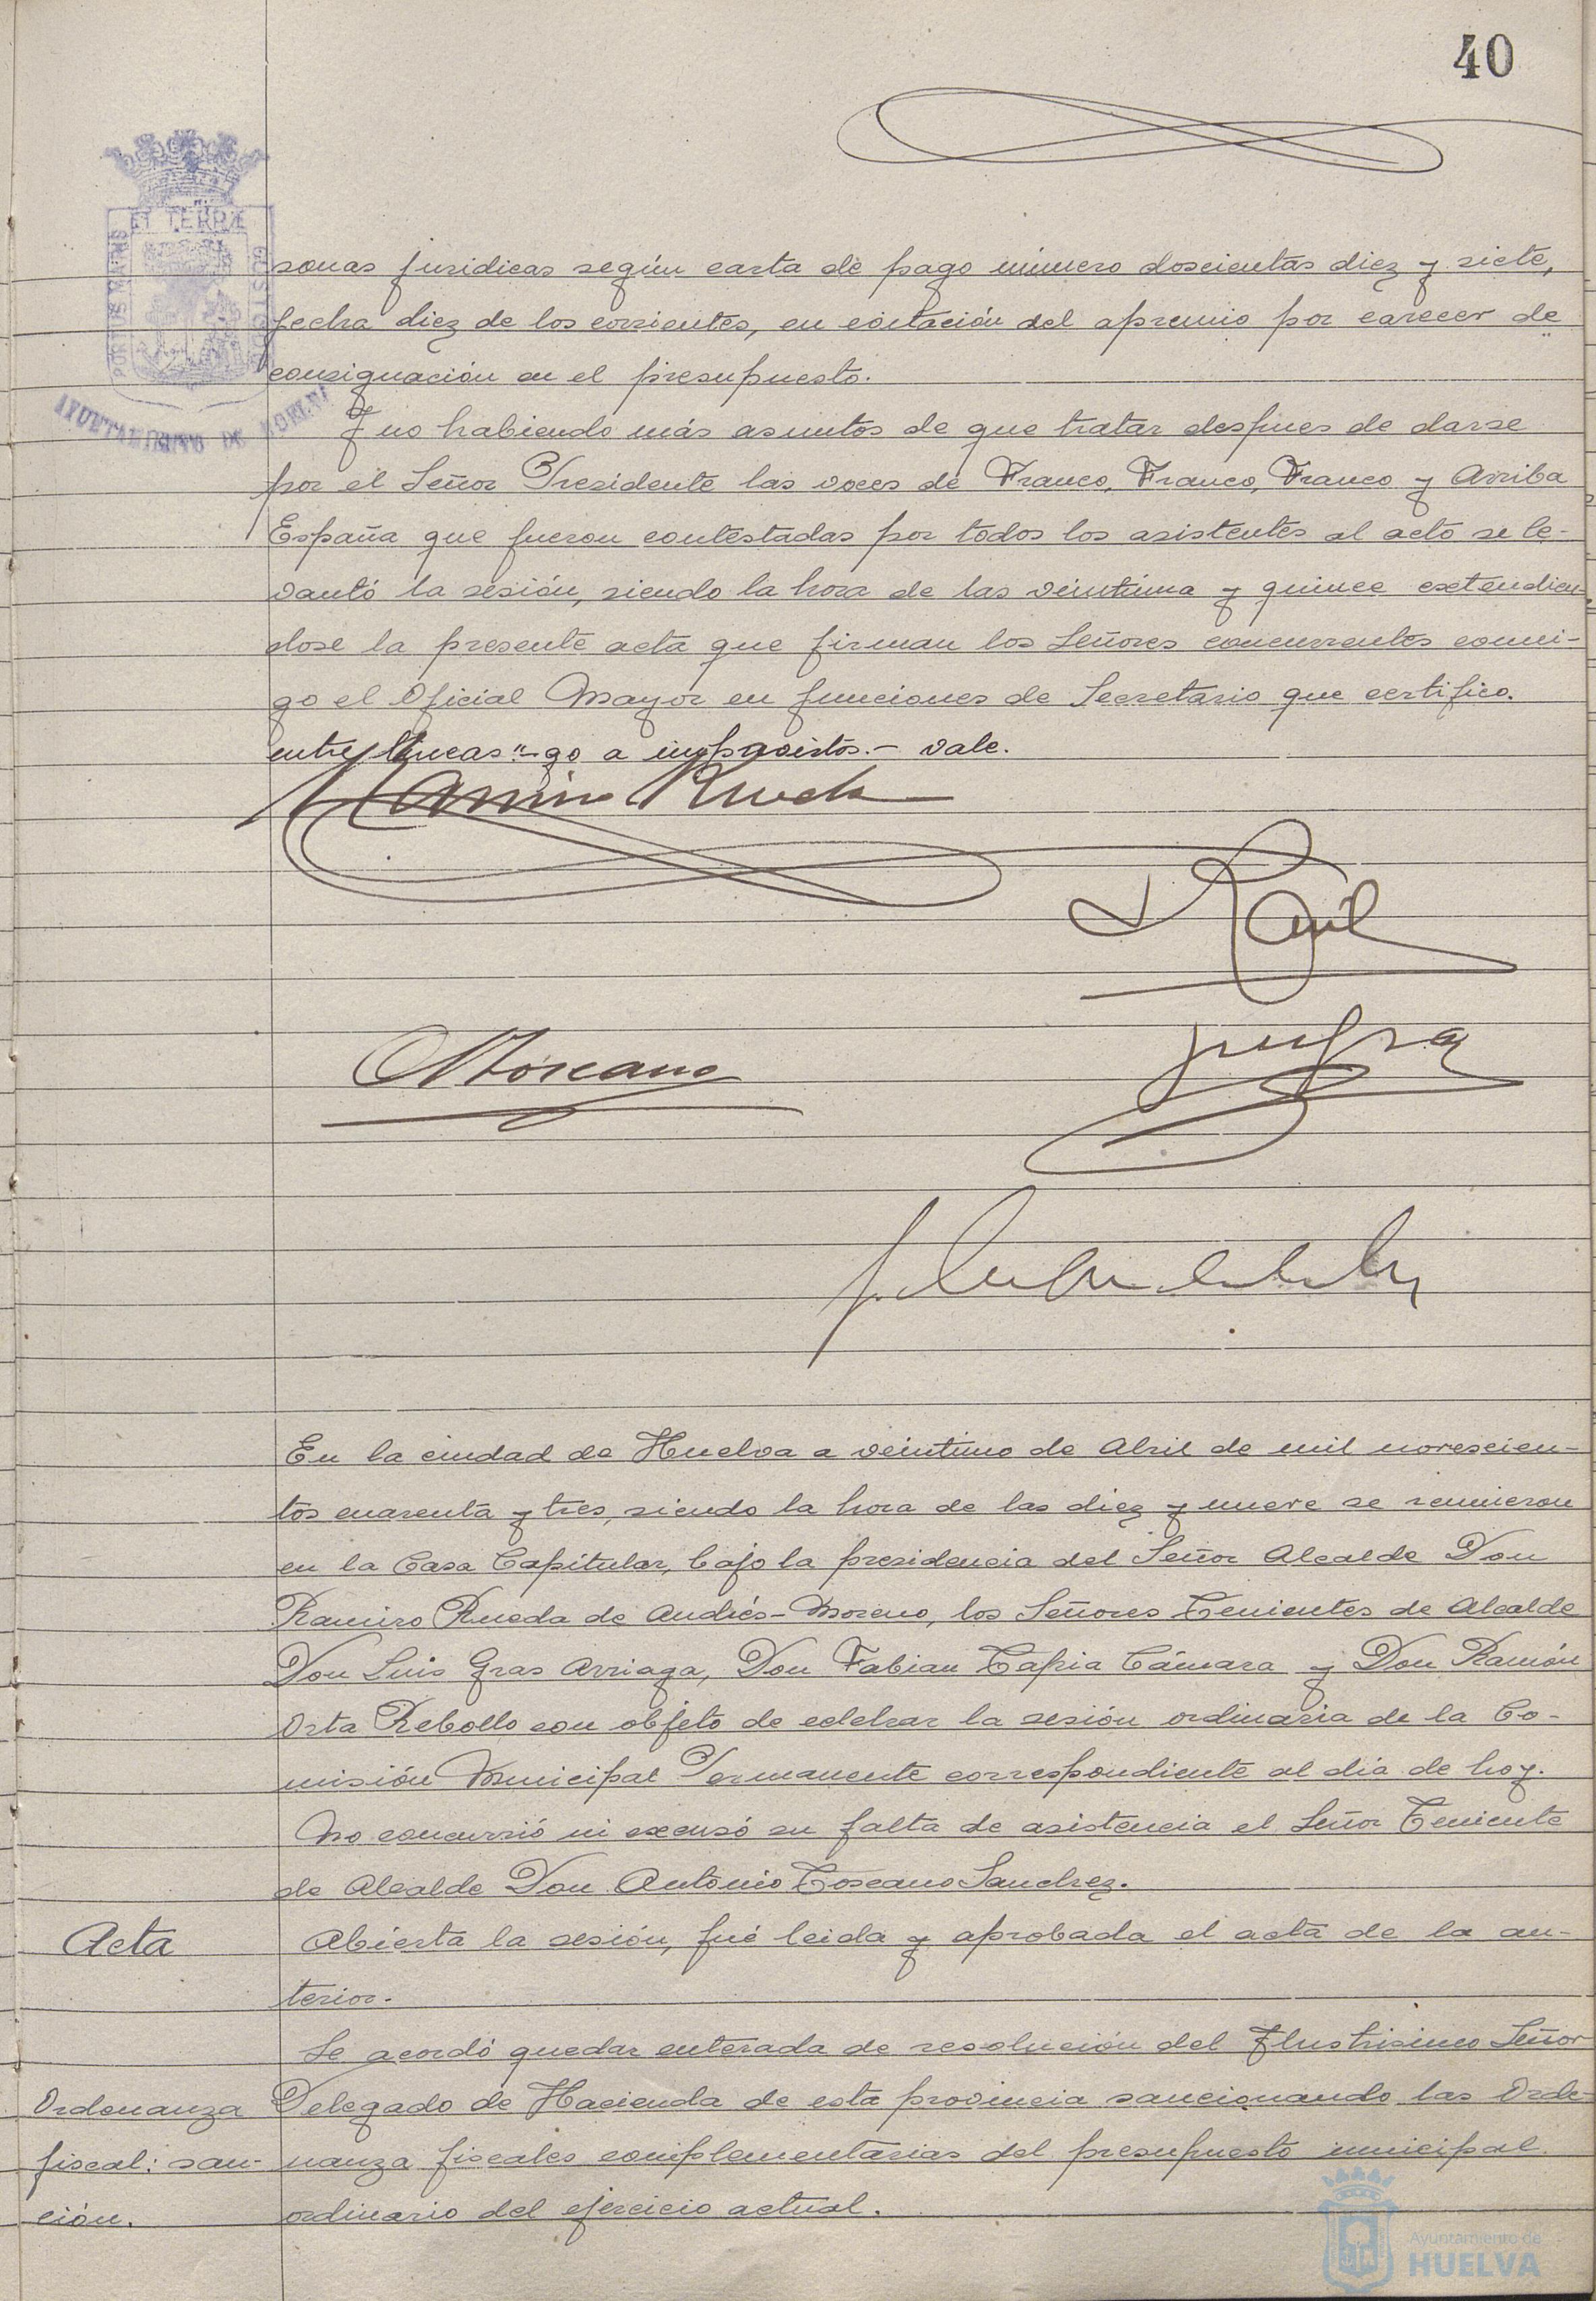 40
ET TERRÆ
PORTUS MARIS
CUSTODIA
AYUNTAMIENTO DE HUELVA
sonas juridicas según carta de pago número doscientas diez y siete,
fecha diez de los corrientes, en evitación del apremio por carecer de
consignación en el presupuesto.
Y no habiendo más asuntos de que tratar despues de darse
por el Señor Presidente las voces de Franco, Franco, Franco y Arriba
España que fueron contestadas por todos los asistentes al acto se le-
vantó la sesión, siendo la hora de las veintiuna y quince extendien-
dose la presente acta que firman los Señores concurrentes conmi-
go el Oficial Mayor en funciones de Secretario que certifico.
entre lineas "-go a imprevistos.- vale.
Ramiro Rueda
Toscano
En la ciudad de Huelva a veintiuno de Abril de mil novescien-
tos cuarenta y tres, siendo la hora de las diez y nueve se reunieron
en la Casa Capitular, bajo la presidencia del Señor Alcalde Don
Ramiro Rueda de Andrés-Moreno, los Señores Tenientes de Alcalde
Don Luis Gras Arriaga, Don Fabian Tapia Cámara y Don Ramón
Orta Rebollo con objeto de celebrar la sesión ordinaria de la Co-
misión Municipal Permanente correspondiente al día de hoy.
No concurrió ni excusó su falta de asistencia el Señor Teniente
de Alcalde Don Antonio Toscano Sanchez.
Acta
Abierta la sesión, fué leida y aprobada el acta de la an-
terior.
Se acordó quedar enterada de resolución del Ilustrisimo Señor
Ordenanza
Delegado de Hacienda de esta provincia sancionando las Orde-
fiscal: san-
nanza fiscales complementarias del presupuesto municipal
ción.
ordinario del ejercicio actual.
Ayuntamiento de
HUELVA